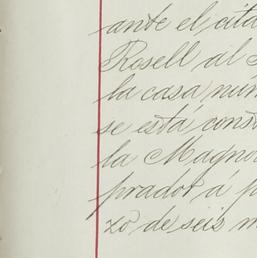 ante el cita
Rosell al
la casa num
se está const
la Magno
prador á p
zo de seis m